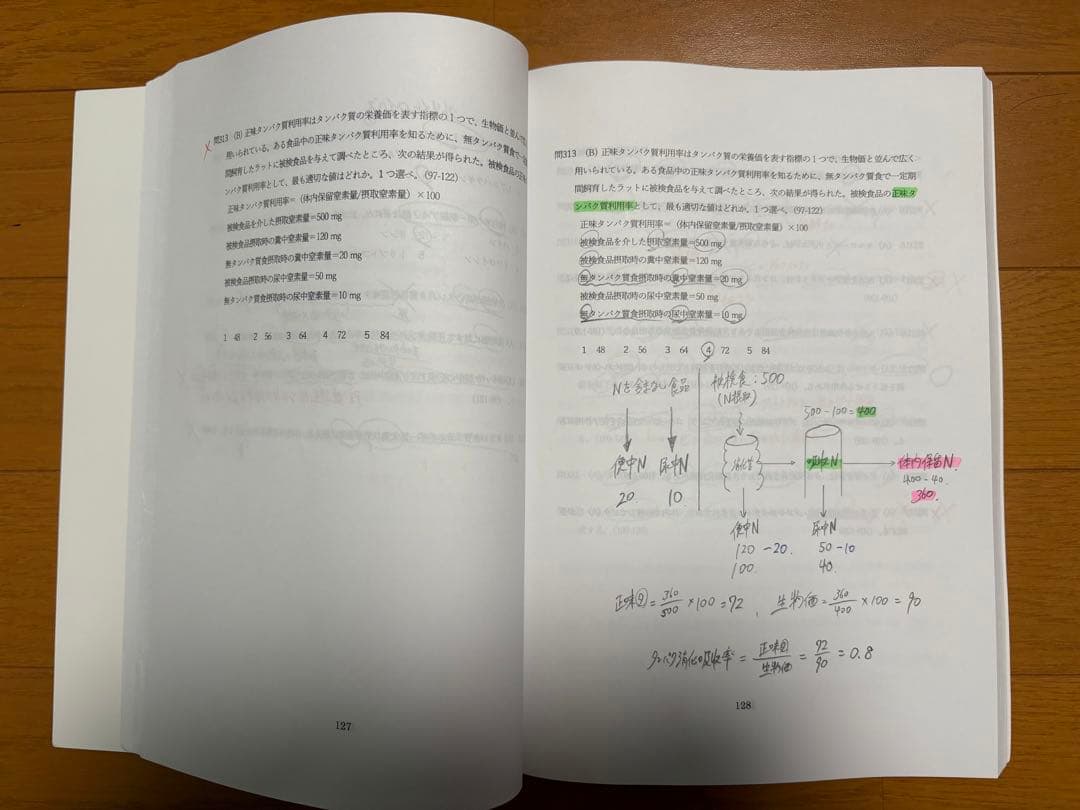 問313 (B) 正味タンパク質利用率はタンパク質の栄養価を表す指標の1つで、生物価と並んで
用いられている。ある食品中の正味タンパク質利用率を知るために、無タンパク質食で一定
間飼育したラットに被検食品を与えて調べたところ、次の結果が得られた。被検食品の正味
ンパク質利用率として、最も適切な値はどれか。1つ選べ。(97-122)
正味タンパク質利用率=(体内保留窒素量/摂取窒素量)×100
被検食品を介した摂取窒素量=500 mg
被検食品摂取時の糞中窒素量=120 mg
無タンパク質食摂取時の糞中窒素量=20 mg
被検食品摂取時の尿中窒素量=50 mg
無タンパク質食摂取時の尿中窒素量=10 mg
1 48 2 56 3 64 4 72 5 84
127
問313 (B) 正味タンパク質利用率はタンパク質の栄養価を表す指標の1つで、生物価と並んで広く
用いられている。ある食品中の正味タンパク質利用率を知るために、無タンパク質食で一定期
間飼育したラットに被検食品を与えて調べたところ、次の結果が得られた。被検食品の正味タ
ンパク質利用率として、最も適切な値はどれか。1つ選べ。(97-122)
正味タンパク質利用率=(体内保留窒素量/摂取窒素量)×100
被検食品を介した摂取窒素量=500 mg
被検食品摂取時の糞中窒素量=120 mg
無タンパク質食摂取時の糞中窒素量=20 mg
被検食品摂取時の尿中窒素量=50 mg
無タンパク質食摂取時の尿中窒素量=10 mg
1 48 2 56 3 64 4 72 5 84
Nを含まない食品
被検食:500
(N摂取)
500-100=400
消化管
吸収N
体内保留N
400-40
360
便中N 尿中N
20 10
便中N 尿中N
120 -20 50 -10
100 40
正味 = 360/500 ×100 = 72, 生物価 = 360/400 ×100 = 90
タンパク消化吸収率 = 正味/生物価 = 72/90 = 0.8
128